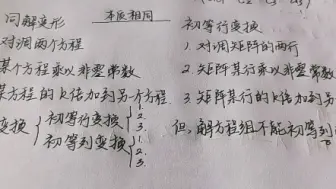 同解变形 本质相同 初等行变换
对调两个方程 1. 对调矩阵的两行
某个方程乘以非零常数 2. 矩阵某行乘以非零常数
某方程的k倍加到另一个方程. 3. 矩阵某行的k倍加到另
变换 { 初等行变换 { 1. 2. 3. 但, 解方程组不能初等列
初等列变换 { 1. 2. 3.